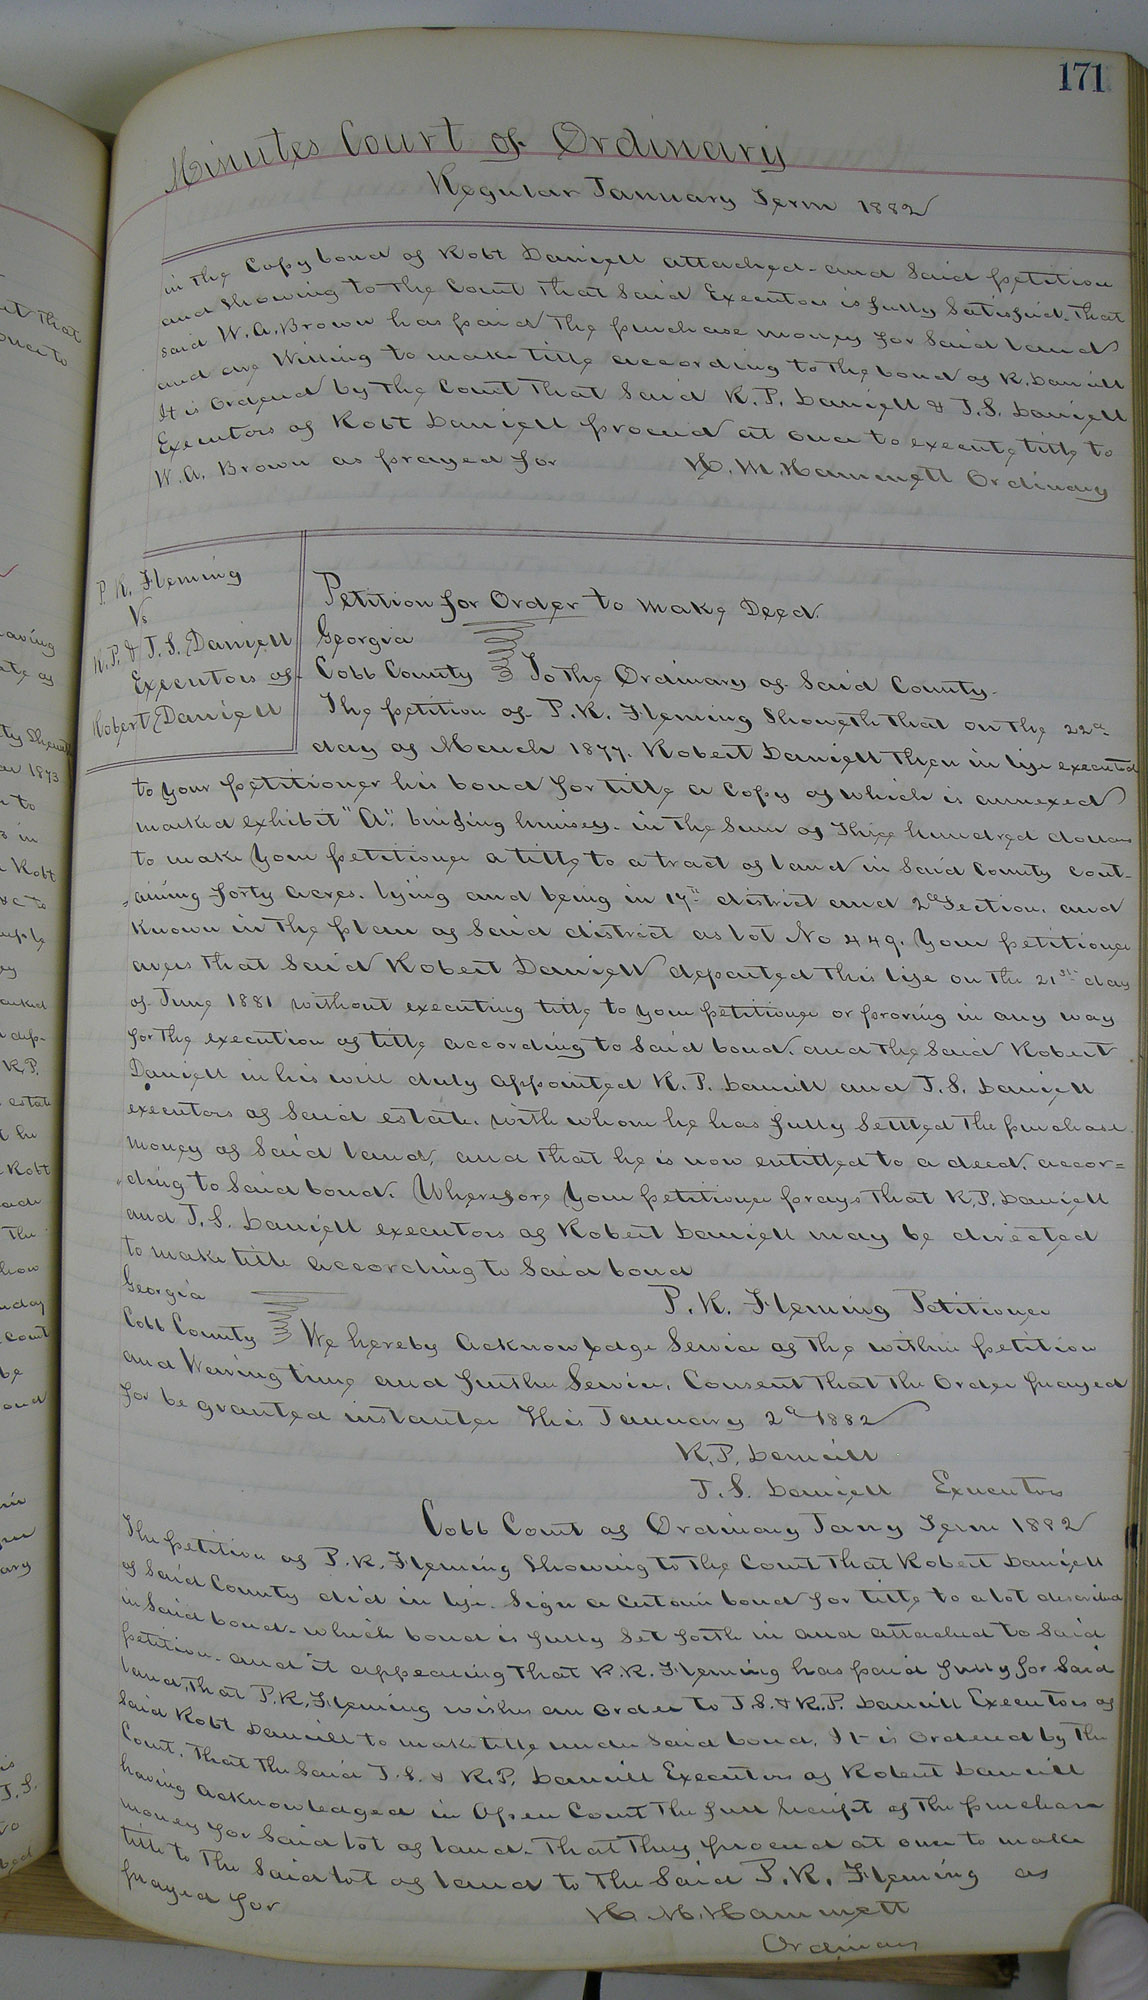 171
Minutes Court of Ordinary
Regular January Term 1882
in the Copy bond of Robt Daniell attached and Said petition
and Showing to the Court that Said Executors is fully Satisfied that
said W. A. Brown has paid the purchase money for Said land
and are Willing to make title according to the bond of R. Daniell
It is Ordered by the Court that Said R. P. Daniell & J. S. Daniell
Executors of Robt Daniell proceed at once to execute title to
W. A. Brown as prayed for H. M. Hammett Ordinary
P. K. Fleming
Vs
R. P. & J. S. Daniell
Executors of
Robert Daniell
Petition for Order to make Deed.
Georgia
Cobb County To the Ordinary of Said County.
The petition of P. K. Fleming Showeth that on the 22d
day of March 1877. Robert Daniell then in life executed
to your petitioner his bond for title a Copy of which is annexed
marked exhibit "A". binding himself in the Sum of Three hundred dollars
to make your petitioner a title to a tract of land in Said County cont-
aining forty acres. lying and being in 17th district and 2d Section, and
Known in the plan of Said district as lot No 449. Your petitioner
avers that Said Robert Daniell departed this life on the 21st day
of June 1881 without executing title to your petitioner or proving in any way
for the execution of title according to Said bond. and the Said Robert
Daniell in his will duly appointed R. P. Daniell and J. S. Daniell
executors of Said estate. with whom he has fully Settled the purchase
money of Said land, and that he is now entitled to a deed. accor=
ding to Said bond. Wherefore your petitioner prays that R. P. Daniell
and J. S. Daniell executors of Robert Daniell may be directed
to make title according to Said bond
P. K. Fleming Petitioner
Georgia
Cobb County We hereby acknowledge Service of the within petition
and Waiving time and further Service, Consent that the Order prayed
for be granted instanter This January 2d 1882
R. P. Daniell
J. S. Daniell Executors
Cobb Court of Ordinary Jany Term 1882
The petition of P. K. Fleming Showing to the Court that Robert Daniell
of Said County did in life. Sign a Certain bond for title to a lot described
in Said bond. which bond is fully Set forth in and attached to Said
petition. and it appearing that P. K. Fleming has paid fully for Said
land, that P. K. Fleming wishes an order to J. S. & R. P. Daniell Executors of
Said Robt Daniell to make title under Said bond. It is Ordered by the
Court. That the Said J. S. & R. P. Daniell Executors of Robert Daniell
having acknowledged in Open Court the full Receipt of the purchase
money for Said lot of land. That they proceed at once to make
title to the Said lot of land to the Said P. K. Fleming as
prayed for
H. M. Hammett
Ordinary